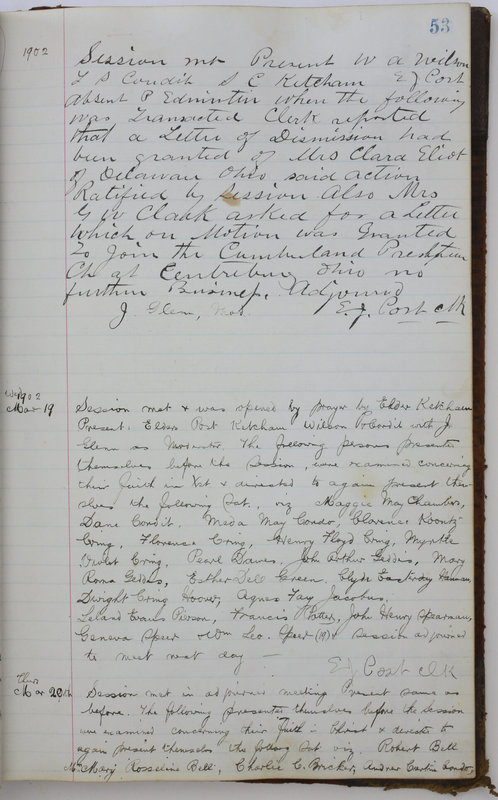 53
1902
Session met Present W a Wilson
L S Condit S C Ketcham E J Post
absent P Edmintin when the following
was Transacted Clerk reported
that a Letter of Dismission had
been granted of Mrs Clara Eliot
of Delawar Ohio said action
Ratified by session Also Mrs
G W Clark asked for a Letter
which on Motion was Granted
to Join the Cumberland
Ch at Centreburg Ohio no
further Business. Adjourned
J. Glenn, Mod. E. J. Post clk
Wed 1902
Mar 19
Session met & was opened by prayer by Elder Ketcham
Present. Elders Post Ketcham Wilson & Condit with J.
Glenn as Moderator. The following persons presented
themselves before the session, were examined concerning
their faith in Xst & directed to again present them-
selves the following Sat. viz Maggie May Chambers,
Dane Condit. Mada May Condo, Clorence Koontz
Cring, Florence Cring, Henry Floyd Cring, Myrtle
Violet Cring. Pearl Dawes. John Arthur Geddes, Mary
Roma Geddes, Esther Dell Green. Clyde
Dwight Cring Hoover, Agnes Fay Jacobus.
Leland Evans Pierson, Francis Potter, John Henry Spearman,
Geneva Speer Wm Leo. Speer (19) & session adjourned
to meet next day —
E J Post clk
Thur
Mar 20th
Session met in adjourned meeting Present same as
before. The following presented themselves before the session
were examined concerning their faith in Christ & directed to
again present themselves the following Sat viz. Robert Bell
Mary Rosseline Bell, Charlie C. Bricker, Andrew Curtin Condo,